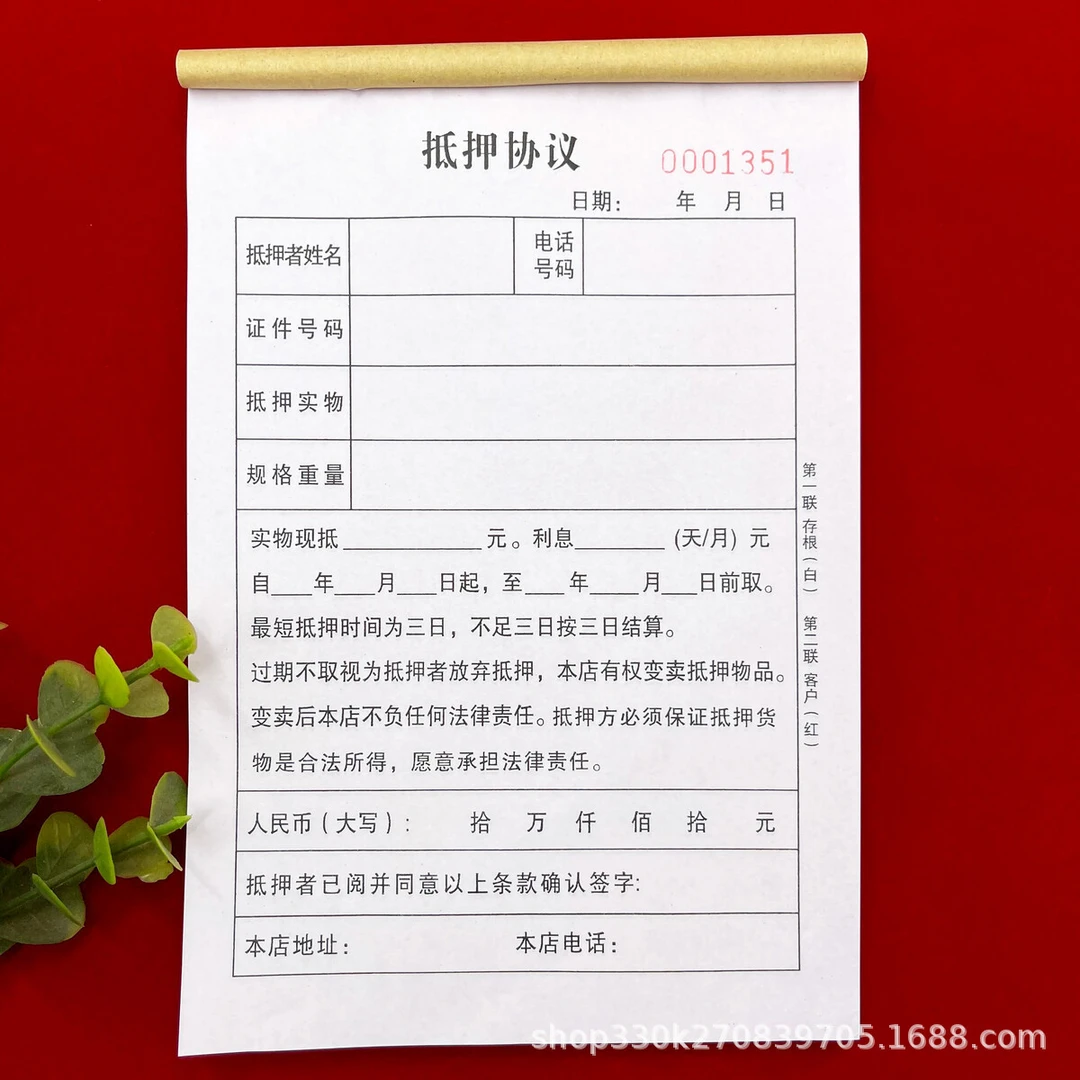 抵押协议
0001351
日期： 年 月 日
抵押者姓名 电话号码
证件号码
抵押实物
规格重量
实物现抵____________元。利息________(天/月) 元
自____年____月____日起，至____年____月____日前取。
最短抵押时间为三日，不足三日按三日结算。
过期不取视为抵押者放弃抵押，本店有权变卖抵押物品。
变卖后本店不负任何法律责任。抵押方必须保证抵押货
物是合法所得，愿意承担法律责任。
人民币（大写）： 拾 万 仟 佰 拾 元
抵押者已阅并同意以上条款确认签字:
本店地址： 本店电话：
第一联 存根（白） 第二联 客户（红）
shop330k270839705.1688.com